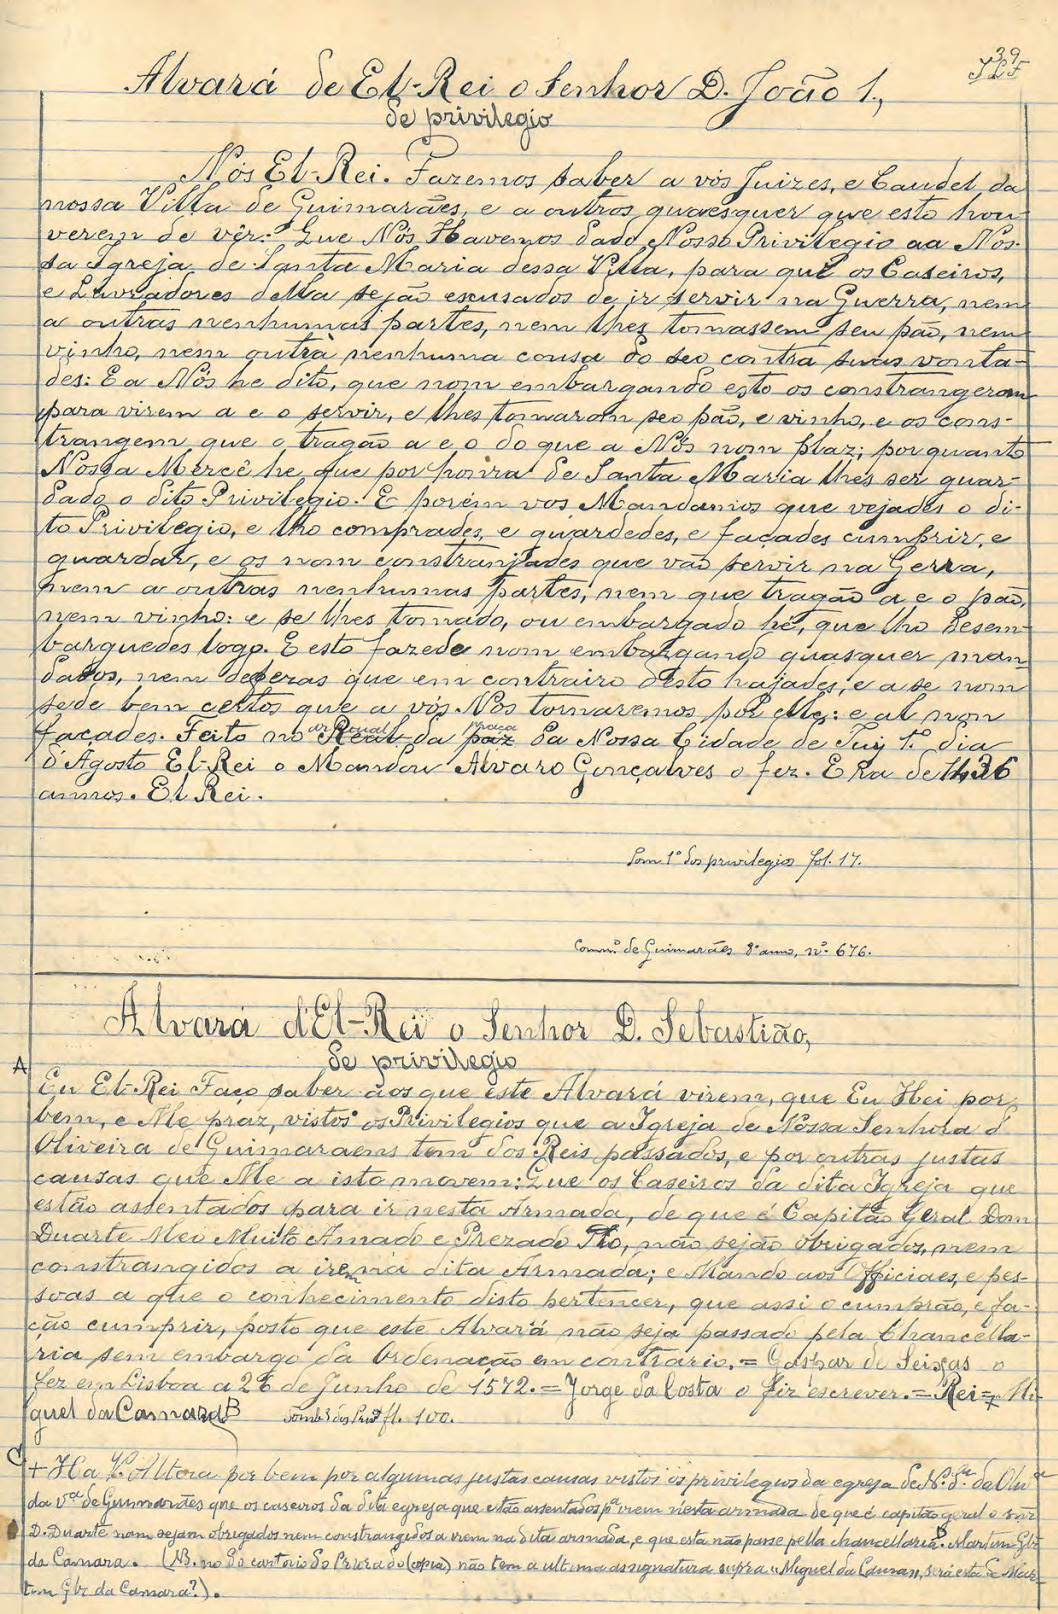 39
JLF
Alvará de El-Rei o Senhor D. João 1.,
de privilegio
Nós El-Rei. Fazemos saber a vós Juizes, e Caudel da
nossa Villa de Guimarães, e a outros quaesquer que esto hou-
verem de vêr: Que Nós Havemos dado Nosso Privilegio aa Nos-
sa Igreja de Santa Maria dessa Villa, para que os Caseiros,
e Lavradores della sejão escusados de ir servir na Guerra, nem
a outras nenhumas partes, nem lhes tomassem seu pão, nem
vinho, nem outra nenhuma cousa do seo contra suas vonta-
des: E a Nós he dito, que nom embargando esto os constrangerom
para virem a e o servir, e lhes tomarom seo pão, e vinho, e os cons-
trangem que o tragão a e o do que a Nós nom plaz; porquanto
Nossa Mercê he que por honra de Santa Maria lhes ser guar-
dado o dito Privilegio. E porém vos Mandamos que vejades o di-
to Privilegio, e lho comprades, e guardedes, e façades cumprir, e
guardar, e os nom constranjades que vão servir na Gerra,
nem a outras nenhumas partes, nem que tragão a e o pão,
nem vinho: e se lhes tomado, ou embargado hé, que lho desem-
barguedes logo. E esto fazede nom embargando quasquer man-
dados, nem defezas que em contrairo desto hajades, e a se nom
sede bem certos que a vós Nós tornaremos por elle: e al nom
façades. Feito no Real da paz da Nossa Cidade de Tuy 1.º dia
d'Agosto El-Rei o Mandou Alvaro Gonçalves o fez. Era de 1436
annos. El Rei.
Tom 1º dos privilegios fol. 17.
Comm.º de Guimarães 8º anno, nº 676.
Alvará d'El-Rei o Senhor D. Sebastião,
de privilegio
A
Eu El-Rei Faço saber aos que este Alvará virem, que Eu Hei por
bem, e Me praz, vistos os Privilegios que a Igreja de Nossa Senhora d'
Oliveira de Guimaraens tem dos Reis passados, e por outras justas
causas que Me a isto movem: Que os Caseiros da dita Igreja que
estão assentados para ir nesta Armada, de que é Capitão Geral Dom
Duarte Meo Muito Amado e Prezado Tio, não sejão obrigados, nem
constrangidos a irem na dita Armada; e Mando aos Officiaes, e pes-
soas a que o conhecimento disto pertencer, que assi o cumprão, e fa-
ção cumprir, posto que este Alvará não seja passado pela Chancella-
ria sem embargo da Ordenação em contrario. = Gaspar de Seixas o
fez em Lisboa a 26 de Junho de 1572. = Jorge da Costa o fiz escrever. = Rei = + Mi-
guel da Camara. B Tomb. 3 dos Priv. fl. 100.
C
+ Ha V. Alteza por bem por algumas justas causas vistos os privilegios da egreja de N. Srª da Oliv.ª
da vª de Guimarães que os caseiros da dita egreja que estão assentados pª irem nesta armada de que é capitão geral o snr
D. Duarte nam sejam obrigados nem constrangidos a irem na dita armada, e que esta não passe pella chancellaria. Martim Glz
da Camara. (NB. no do cartorio do Priorado (copia) não tem a ultima assignatura supra "Miguel da Camara", será esta de Mar-
tim Glz da Camara?).